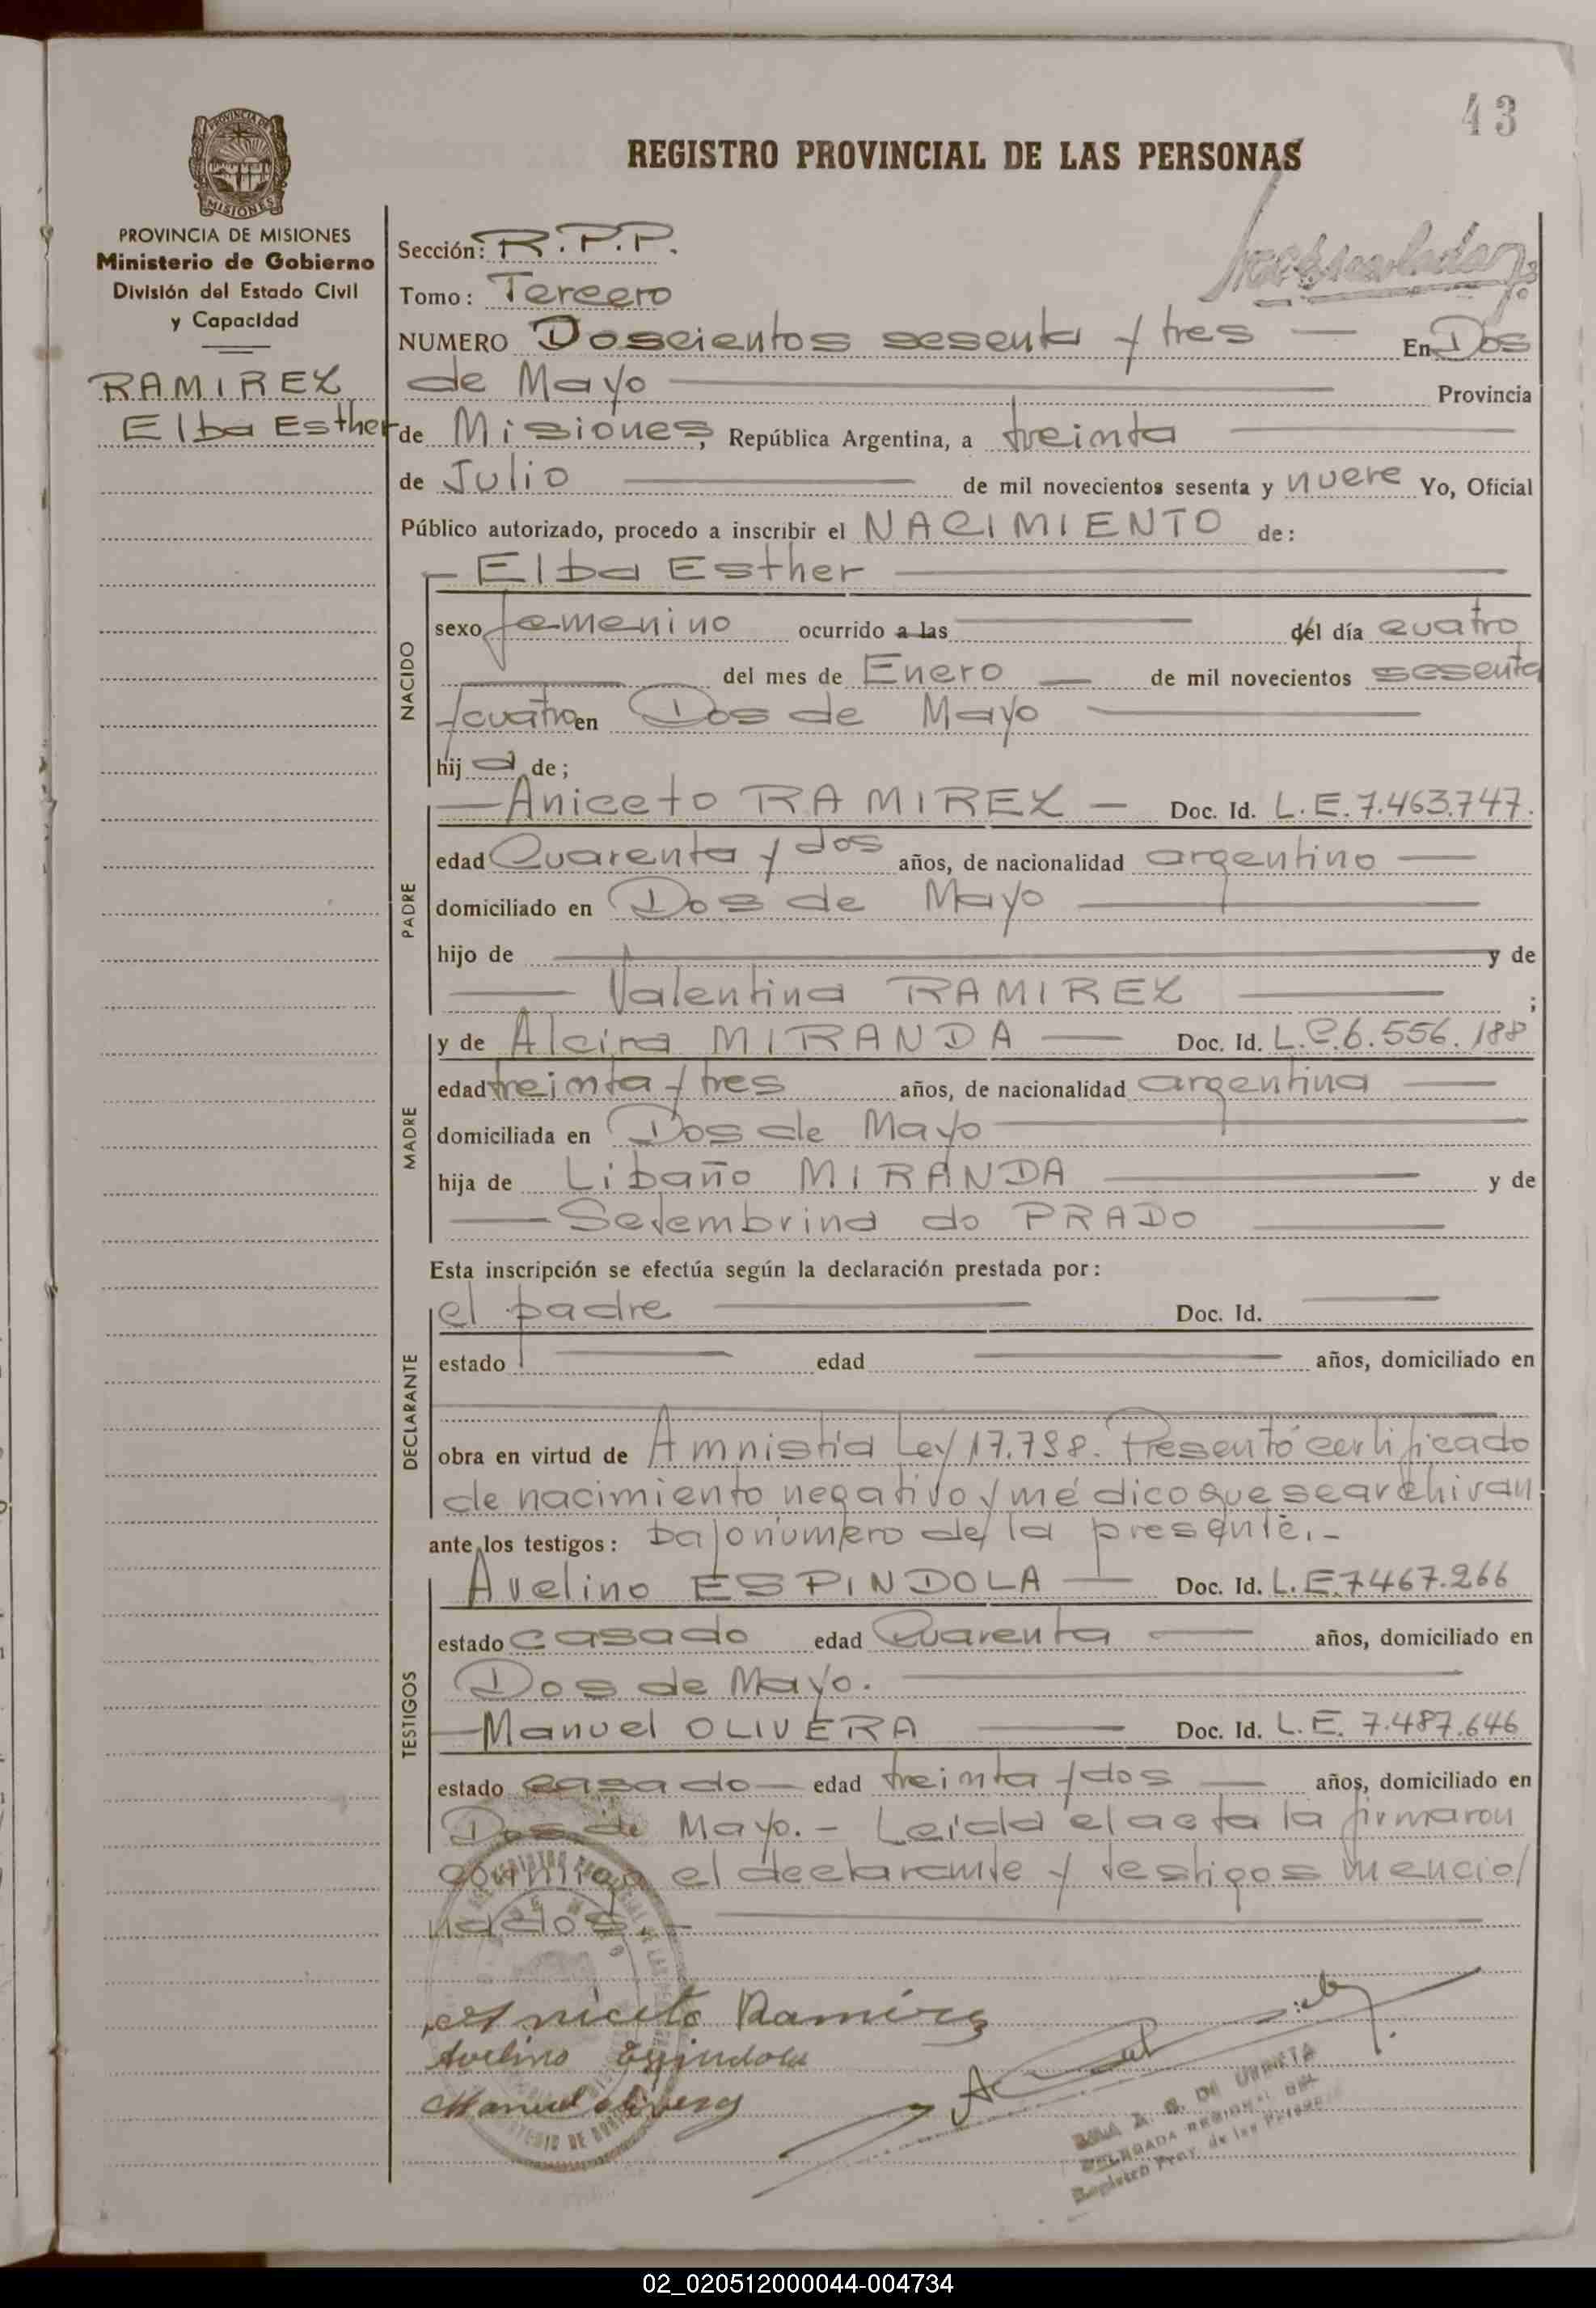 43
REGISTRO PROVINCIAL DE LAS PERSONAS
PROVINCIA DE MISIONES
Ministerio de Gobierno
División del Estado Civil
y Capacidad
RAMIREZ
Elba Esther
Sección: R.P.P.
Tomo: Tercero
NUMERO Doscientos sesenta y tres — En Dos
de Mayo — Provincia
de Misiones, República Argentina, a treinta —
de Julio — de mil novecientos sesenta y nueve Yo, Oficial
Público autorizado, procedo a inscribir el NACIMIENTO de:
— Elba Esther —
NACIDO
sexo femenino ocurrido a las — del día cuatro
— del mes de Enero — de mil novecientos sesenta
y cuatro en Dos de Mayo —
hij a de;
— Aniceto RAMIREZ — Doc. Id. L.E. 7.463.747.
PADRE
edad Cuarenta y dos años, de nacionalidad argentino —
domiciliado en Dos de Mayo —
hijo de — y de
— Valentina RAMIREZ — ;
y de Alcira MIRANDA — Doc. Id. L.C. 6.556.188
MADRE
edad treinta y tres años, de nacionalidad argentina —
domiciliada en Dos de Mayo —
hija de Libaño MIRANDA — y de
— Setembrina do PRADO —
Esta inscripción se efectúa según la declaración prestada por:
el padre — Doc. Id. —
DECLARANTE
estado — edad — años, domiciliado en
—
obra en virtud de Amnistía Ley 17.798. Presentó certificado
de nacimiento negativo y médico que se archivan
ante los testigos: bajo número de la presente.-
Avelino ESPINDOLA — Doc. Id. L.E. 7467.266
TESTIGOS
estado casado edad Cuarenta — años, domiciliado en
Dos de Mayo. —
— Manuel OLIVERA — Doc. Id. L.E. 7.487.646
estado casado — edad treinta y dos — años, domiciliado en
Dos de Mayo. - Leída el acta la firmaron
conmigo el declarante y testigos mencio/
nados. —
Aniceto Ramirez
Avelino Espindola
Manuel Olivera
DELEGADA REGIONAL DEL
Registro Prov. de las Personas
02_020512000044-004734